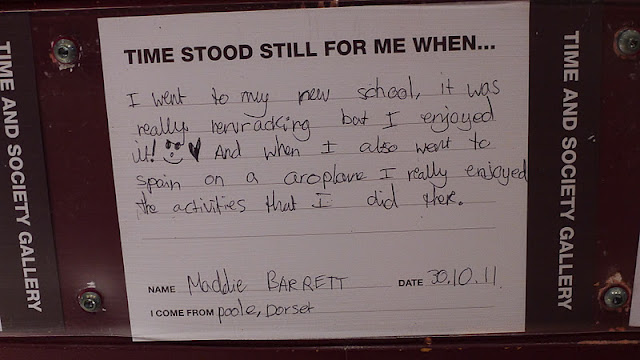 TIME STOOD STILL FOR ME WHEN...
I went to my new school, it was
really nervracking but I enjoyed
it! And when I also went to
spain on a aroplane I really enjoyed
the activities that I did there.
NAME Maddie BARRETT DATE 30.10.11
I COME FROM poole, Dorset
TIME AND SOCIETY GALLERY
TIME AND SOCIETY GALLERY